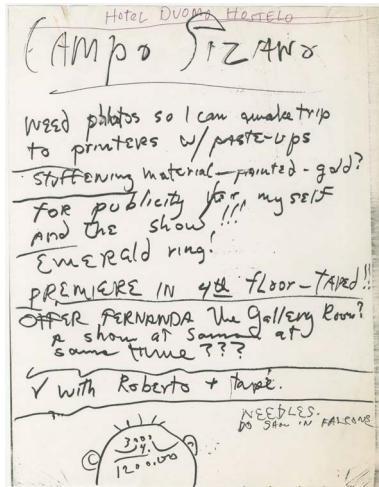 Hotel DUOMO HOSTELO
CAMPO
NEED photos so I can make trip
to printERS w/ pASTE-UPS
StuffENING material — painted - gold?
FOR publicity for my self
AND the show!!!
EMERAld ring!
PREMIERE IN 4th floor - TAPED!!
OFFER FERNANDA the Gallery Room?
A show at same at
same time ???
√ with Roberto + tape.
NEEDLES.
DO IN
3000
4.
1200.00